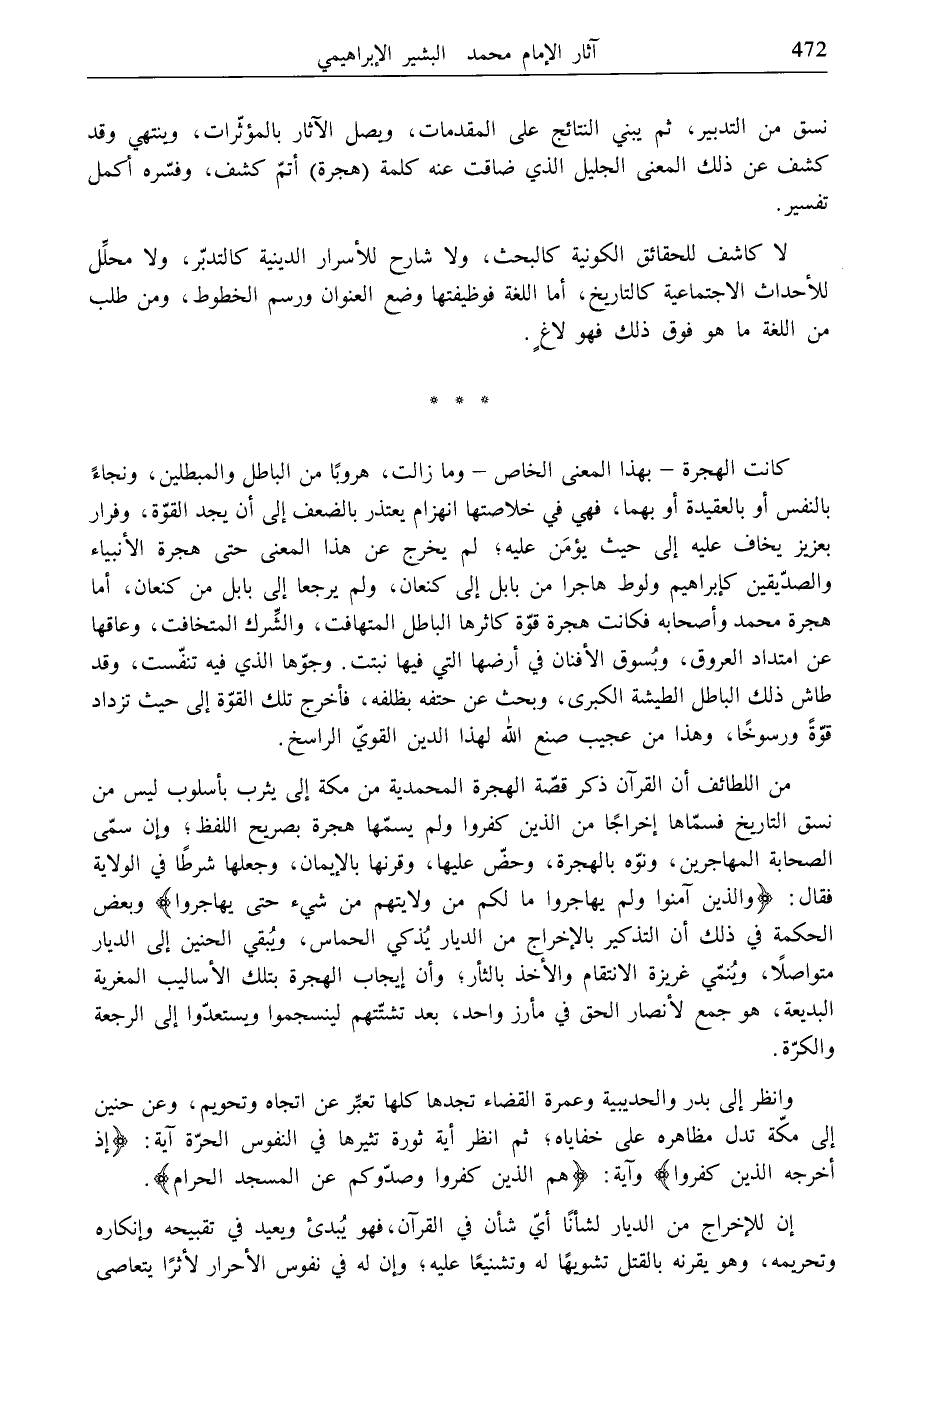 472
آثار الإمام محمد البشير الإبراهيمي
نسق من التدبير، ثم يبني النتائج على المقدمات، ويصل الآثار بالمؤثّرات، وينتهي وقد
كشف عن ذلك المعنى الجليل الذي ضاقت عنه كلمة (هجرة) أتمّ كشف، وفسّره أكمل
تفسير.
لا كاشف للحقائق الكونية كالبحث، ولا شارح للأسرار الدينية كالتدبّر، ولا محلِّل
للأحداث الاجتماعية كالتاريخ، أما اللغة فوظيفتها وضع العنوان ورسم الخطوط، ومن طلب
من اللغة ما هو فوق ذلك فهو لاغٍ.
* * *
كانت الهجرة – بهذا المعنى الخاص – وما زالت، هروبًا من الباطل والمبطلين، ونجاءً
بالنفس أو بالعقيدة أو بهما، فهي في خلاصتها انهزام يعتذر بالضعف إلى أن يجد القوّة، وفرار
بعزيز يخاف عليه إلى حيث يؤمَن عليه؛ لم يخرج عن هذا المعنى حتى هجرة الأنبياء
والصدّيقين كإبراهيم ولوط هاجرا من بابل إلى كنعان، ولم يرجعا إلى بابل من كنعان، أما
هجرة محمد وأصحابه فكانت هجرة قوّة كاثرها الباطل المتهافت، والشِّرك المتخافت، وعاقها
عن امتداد العروق، وبُسوق الأفنان في أرضها التي فيها نبتت. وجوّها الذي فيه تنفّست، وقد
طاش ذلك الباطل الطيشة الكبرى، وبحث عن حتفه بظلفه، فأخرج تلك القوّة إلى حيث تزداد
قوّةً ورسوخًا، وهذا من عجيب صنع الله لهذا الدين القويّ الراسخ.
من اللطائف أن القرآن ذكر قصّة الهجرة المحمدية من مكة إلى يثرب بأسلوب ليس من
نسق التاريخ فسمّاها إخراجًا من الذين كفروا ولم يسمّها هجرة بصريح اللفظ؛ وإن سمّى
الصحابة المهاجرين، ونوّه بالهجرة، وحضّ عليها، وقرنها بالإيمان، وجعلها شرطًا في الولاية
فقال: ﴿والذين آمنوا ولم يهاجروا ما لكم من ولايتهم من شيء حتى يهاجروا﴾ وبعض
الحكمة في ذلك أن التذكير بالإخراج من الديار يُذكي الحماس، ويُبقي الحنين إلى الديار
متواصلًا، ويُنمّي غريزة الانتقام والأخذ بالثأر؛ وأن إيجاب الهجرة بتلك الأساليب المغرية
البديعة، هو جمع لأنصار الحق في مأرز واحد، بعد تشتّتهم لينسجموا ويستعدّوا إلى الرجعة
والكرّة.
وانظر إلى بدر والحديبية وعمرة القضاء تجدها كلها تعبِّر عن اتجاه وتحويم، وعن حنين
إلى مكّة تدل مظاهره على خفاياه؛ ثم انظر أية ثورة تثيرها في النفوس الحرّة آية: ﴿إذ
أخرجه الذين كفروا﴾ وآية: ﴿هم الذين كفروا وصدّوكم عن المسجد الحرام﴾.
إن للإخراج من الديار لشأنًا أيّ شأن في القرآن، فهو يُبدئ ويعيد في تقبيحه وإنكاره
وتحريمه، وهو يقرنه بالقتل تشويهًا له وتشنيعًا عليه؛ وإن له في نفوس الأحرار لأثرًا يتعاصى